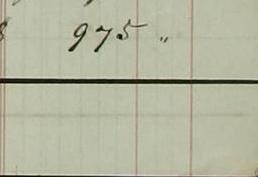 975 "